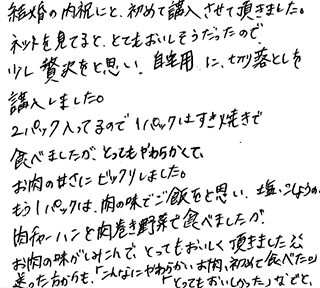 結婚の内祝にと、初めて購入させて頂きました。
ネットを見てると、とてもおいしそうだったので
少し贅沢をと思い、自宅用に、切り落としを
購入しました。
2パック入ってるので1パックはすき焼きで
食べましたが、とってもやわらかくて、
お肉の甘さにビックリしました。
もう1パックは、肉の味でご飯をと思い、塩、こしょうの
肉チャーハンと肉巻き野菜で食べましたが、
お肉の味がしみこんで、とってもおいしく頂きました
送った方からも、「こんなにやわらかいお肉、初めて食べた。」
「とってもおいしかった。」などと、